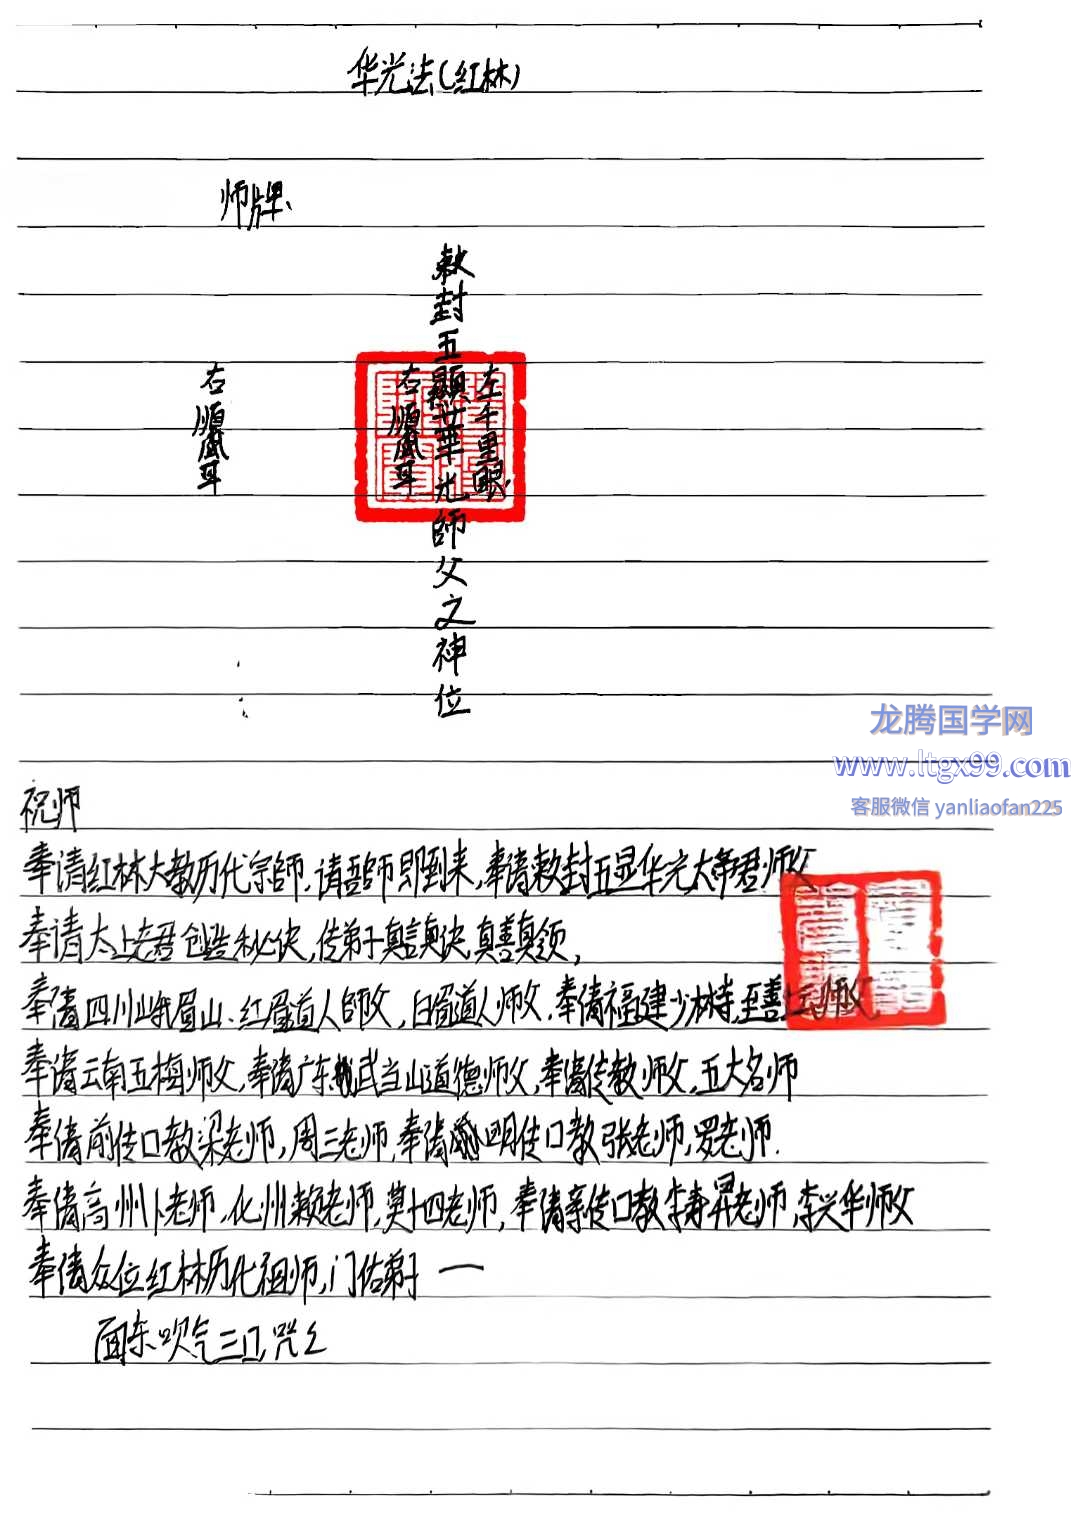 华光法(红林)
师牌、
敕封五顯华華光師父之神位
左千里眼
右順風耳
右順風耳
龙腾国学网
www.ltgx99.com
客服微信 yanliaofan225
祝师
奉请红林大教历代宗師,请吾師即到来,奉请敕封五显华光大帝君师父
奉请太上老君创造秘诀,传弟子真言真诀,真善真领,
奉请四川峨眉山、红眉道人師父,白眉道人师父,奉请福建少林寺,至善 师父
奉请云南五梅师父,奉请广东 武当山道德师父,奉请传教师父,五大名师
奉请前传口教梁老师,周三老师,奉请 明传口教张老师,罗老师.
奉请高州卜老师、化州赖老师,莫十四老师,奉请亲传口教李 昇老师,李兴华师父
奉请众位红林历代祖师,门佑弟子一
面东吹气三口,咒么